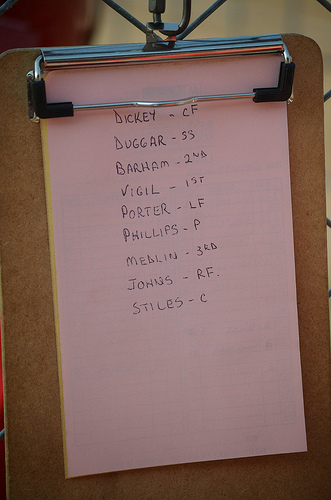 DICKEY - CF
DUGGAR - SS
BARHAM - 2ND
VIGIL - 1ST
PORTER - LF
PHILLIPS - P
MEDLIN - 3RD
JOHNS - RF.
STILES - C